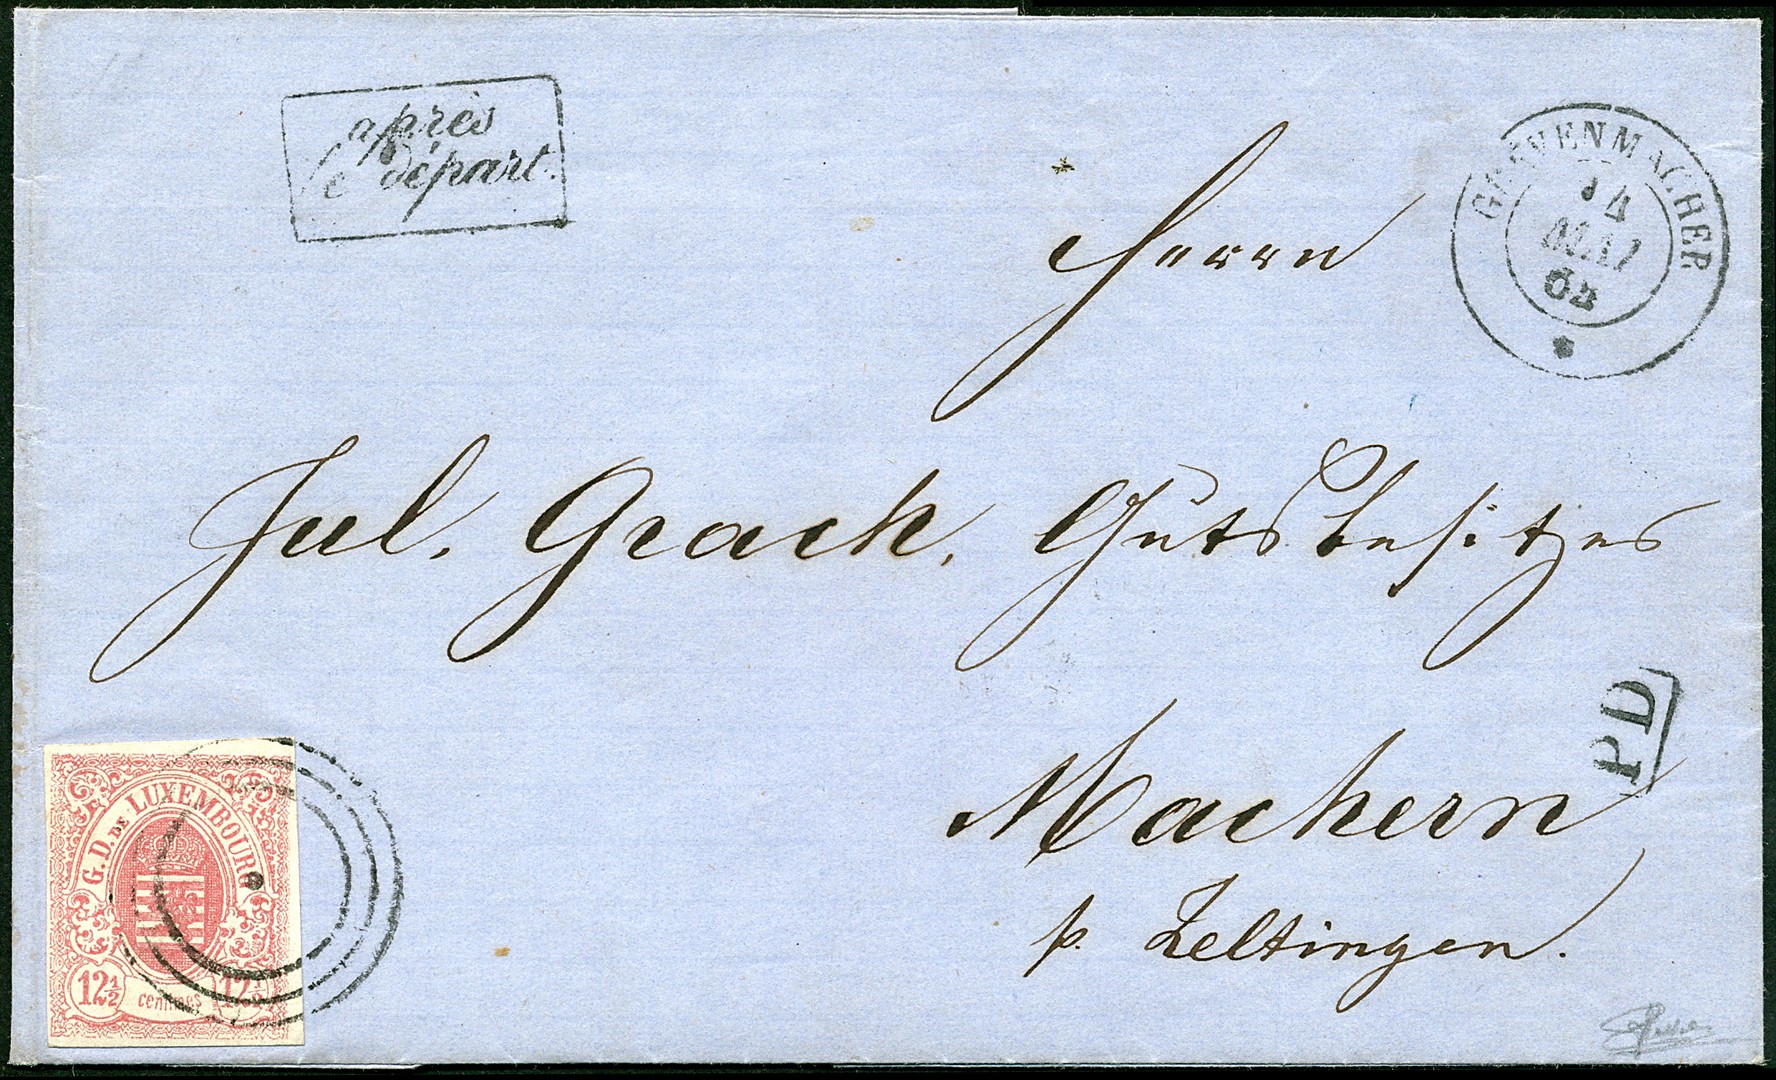 après
le départ.
GREVENMACHER
14
MAI
63
Herrn
Jul. Grach, Gutsbesitzer
Machern
p. Zeltingen.
PD
G. D. DE LUXEMBOURG
12½ centimes 12½